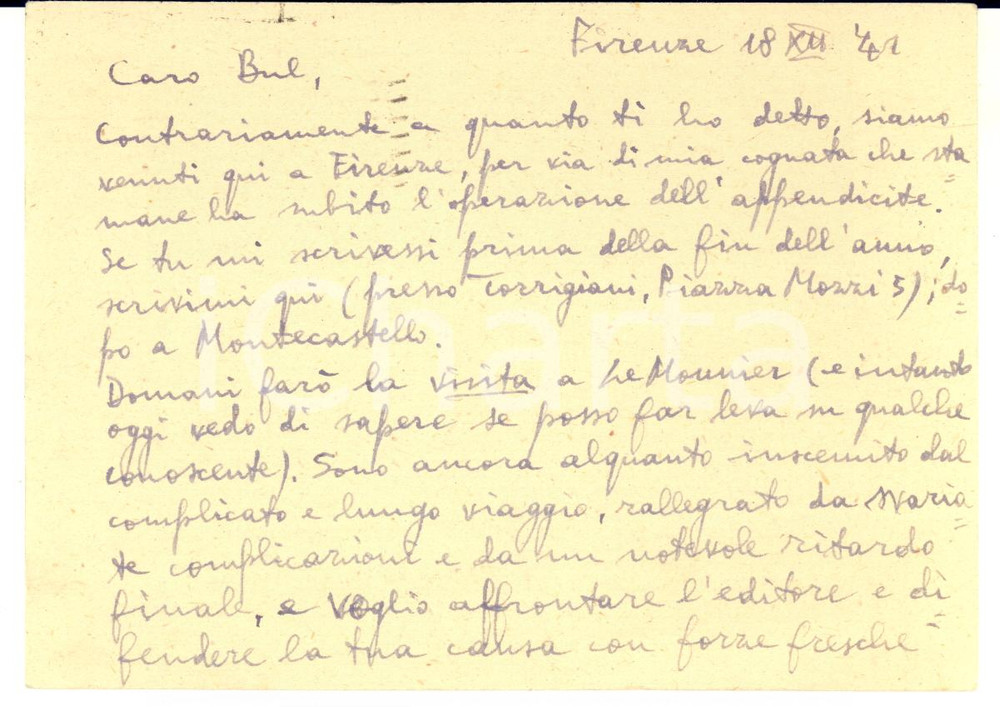 Firenze 18 XII '41
Caro Bul,
Contrariamente a quanto ti ho detto, siamo
venuti qui a Firenze, per via di mia cognata che sta=
mane ha subito l'operazione dell'appendicite.
Se tu mi scrivessi prima della fin dell'anno,
scrivimi qui (presso Torrigiani, Piazza Mozzi 5); do=
po a Montecastello.
Domani farò la visita a Le Monnier (e intanto
oggi vedo di sapere se posso far leva su qualche
conoscente). Sono ancora alquanto inscemito dal
complicato e lungo viaggio, rallegrato da svaria=
te complicazioni e da un notevole ritardo
finale, e voglio affrontare l'editore e di=
fendere la tua causa con forze fresche
iCharta